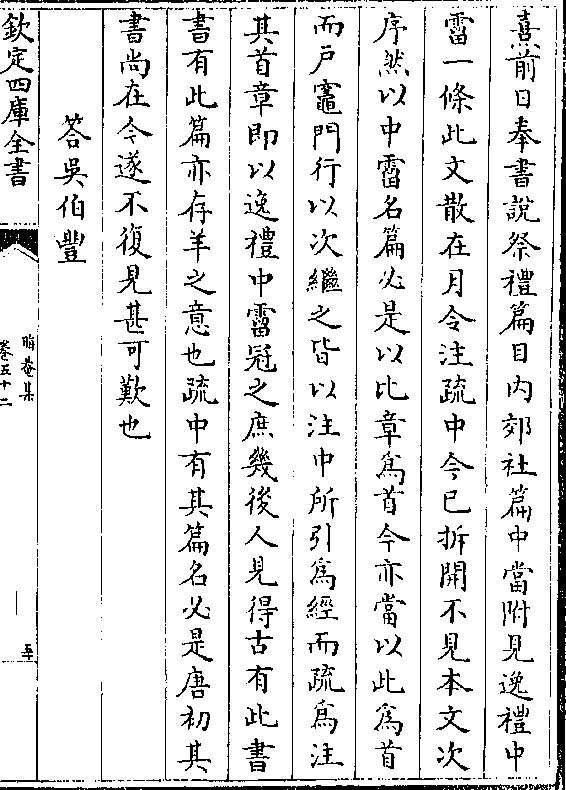 熹前日奉書說祭禮篇目内郊社篇中當附見逸禮中
霤一條此文散在月令注疏中今已拆開不見本文次
序然以中霤名篇必是以此章爲首今亦當以此爲首
而戸竈門行以次繼之皆以注中所引爲經而疏爲注
其首章即以逸禮中霤冠之庶幾後人見得古有此書
書有此篇亦存羊之意也疏中有其篇名必是唐初其
書尚在今遂不復見甚可歎也
答吳伯豐
欽定四庫全書
晦菴集
卷五十二